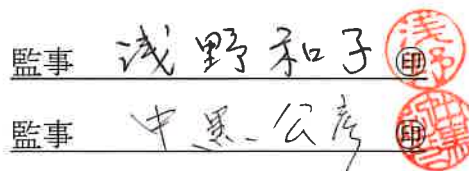 監事 浅野和子 ㊞ 浅野
監事 中黒公彦 ㊞